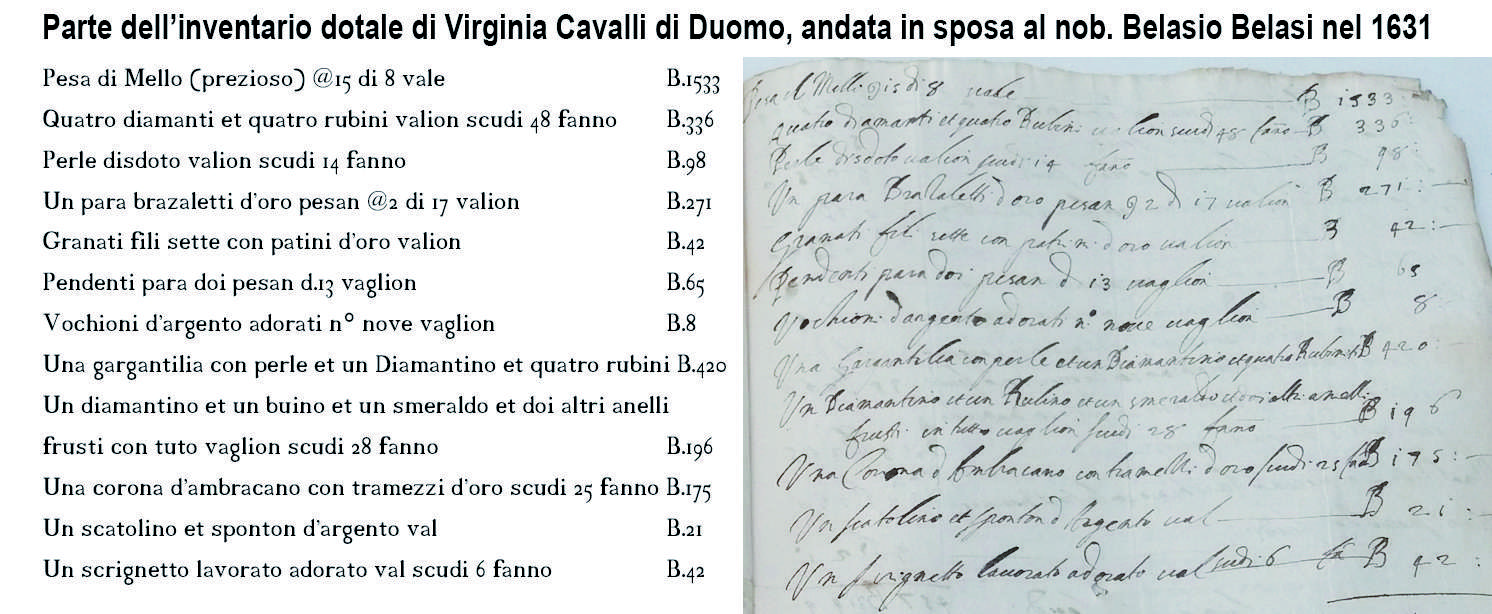 Parte dell’inventario dotale di Virginia Cavalli di Duomo, andata in sposa al nob. Belasio Belasi nel 1631
Pesa di Mello (prezioso) @15 di 8 vale B.1533
Quatro diamanti et quatro rubini valion scudi 48 fanno B.336
Perle disdoto valion scudi 14 fanno B.98
Un para brazaletti d’oro pesan @2 di 17 valion B.271
Granati fili sette con patini d’oro valion B.42
Pendenti para doi pesan d.13 vaglion B.65
Vochioni d’argento adorati n° nove vaglion B.8
Una gargantilia con perle et un Diamantino et quatro rubini B.420
Un diamantino et un buino et un smeraldo et doi altri anelli
frusti con tuto vaglion scudi 28 fanno B.196
Una corona d’ambracano con tramezzi d’oro scudi 25 fanno B.175
Un scatolino et sponton d’argento val B.21
Un scrignetto lavorato adorato val scudi 6 fanno B.42
Pesa il Melli 15 di 8 vale B 1533
quatro diamanti et quatro Rubini valion scudi 48 fano B 336:
Perle disdoto valion scudi 14 fano B 98:
Un para Brazaletti d oro pesan 2 d 17 valion B 271:
Granati fili sette con patini d oro valion B 42:
Pendenti para doi pesan d 13 vaglion B 65
Vochioni d argento adorati n° nove vaglion B 8
Una Gargantilia con perle et un Diamantino et quatro Rubini B 420:
Un Diamantino et un Rubino et un smeraldo et doi altri anelli
frusti in tutto vaglion scudi 28 fanno B 196
Una Corona d Ambracano con tramelli d oro scudi 25 B 175:
Un scatolino et sponton d Argento val B 21:
Un scrignetto lavorato adorato val scudi 6 B 42: